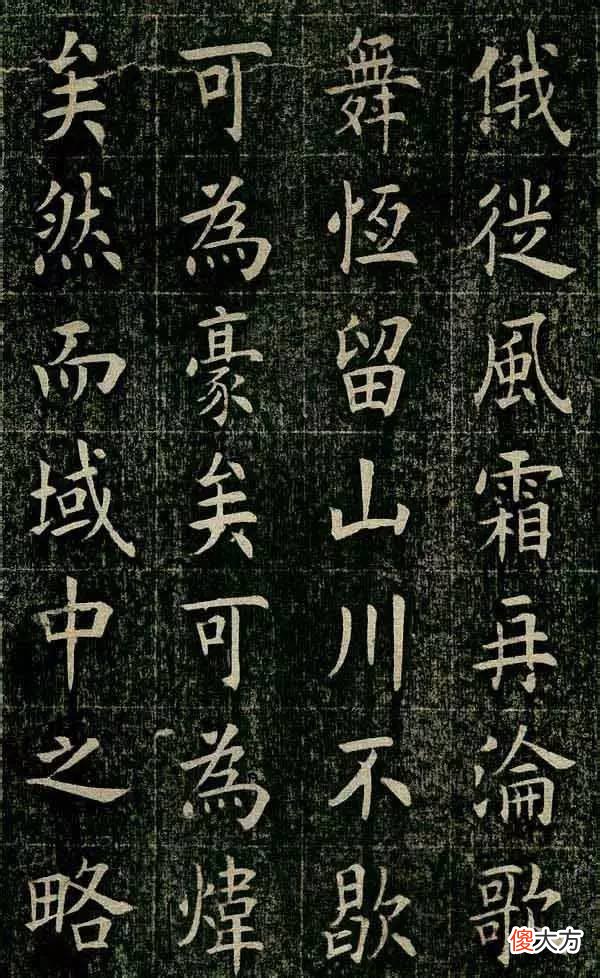 俄徙風霜再淪歌
舞恆留山川不歇
可為豪矣可為煒
矣然而域中之略
傻大方